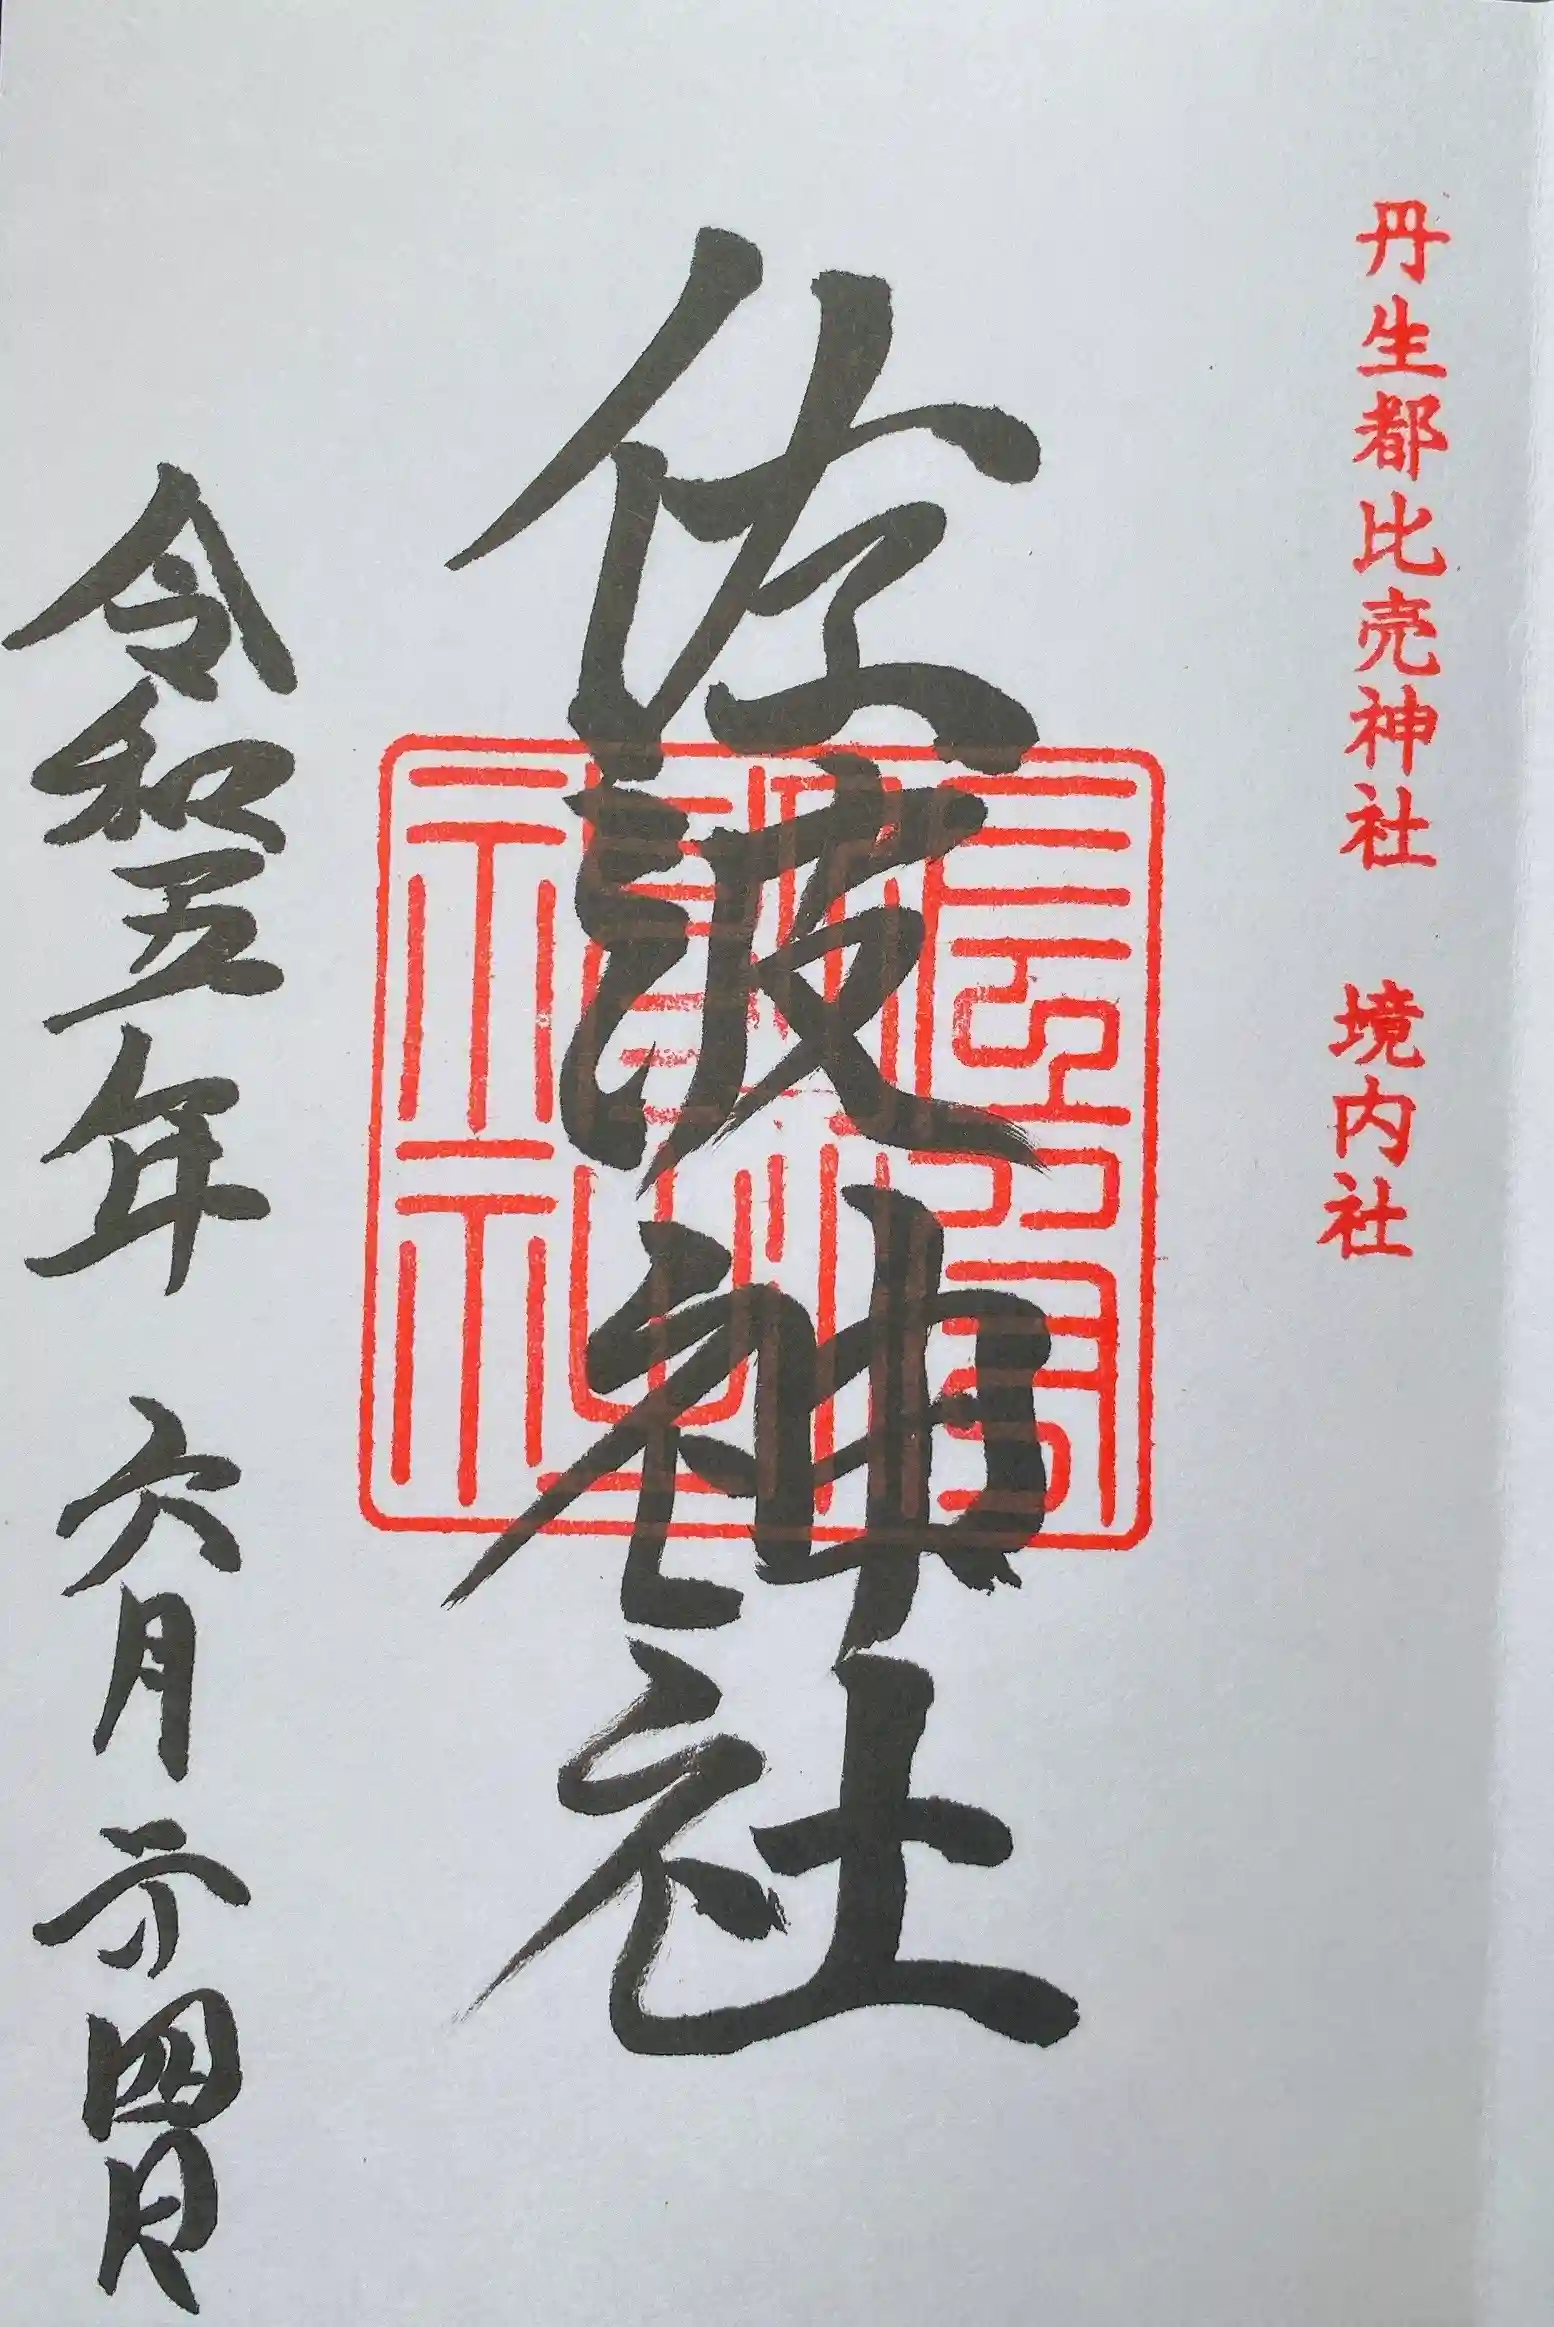 丹生都比売神社 境内社
佐波神社
令和五年 六月 廿四日